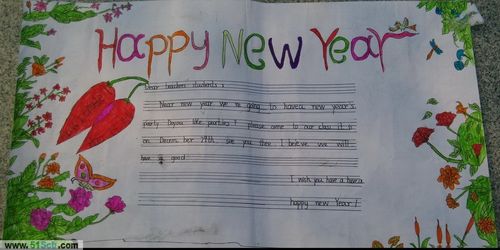 Happy New Year
Dear teachers students :
Near new year we re going to haveal new year's
party Doyou like parties ? please come to our class it is
on Decem ber 29th see you then I belive we will
have good
I wish you have a
happy new Year !
www.51Sch.com